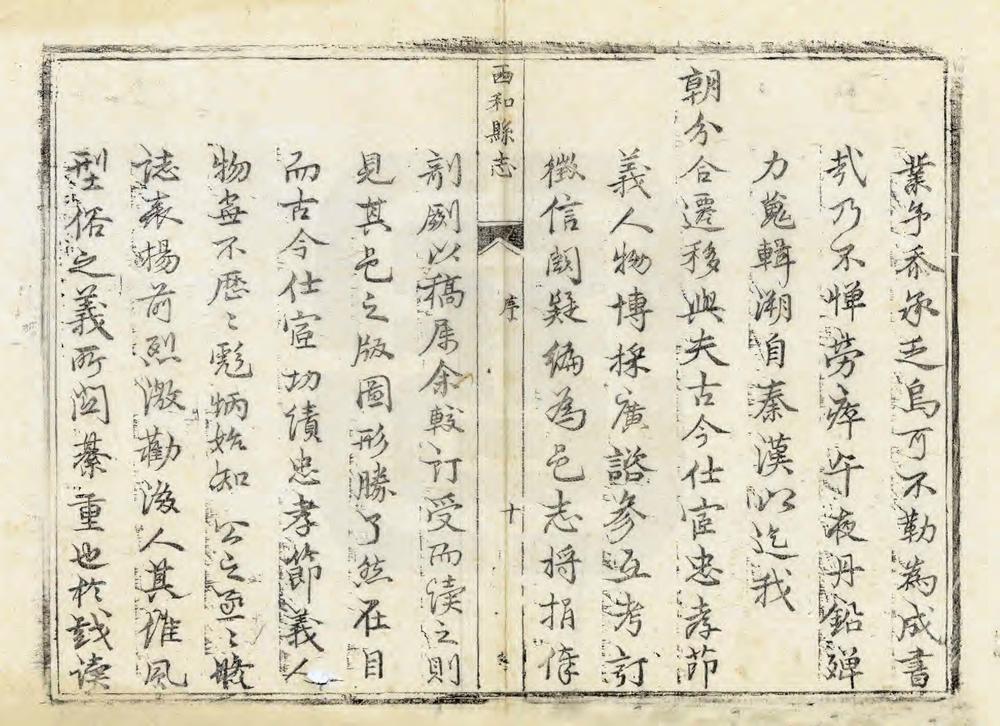 業予忝承乏烏可不勒為成書
哉乃不憚勞瘁午夜丹鉛殫
力蒐輯溯自秦漢以迄我
朝分合遷移與夫古今仕宦忠孝節
義人物博採廣諮參互考訂
徵信闕疑編為邑志將捐俸
西和縣志
序
十
剞劂以稿屬余較訂受而讀之則
見其邑之版圖形勝了然在目
而古今仕宦功績忠孝節義人
物無不歷〻彪炳始知 公之亟〻
誌表揚前烈激勸後人其維風
型俗之義所關綦重也於戲讀